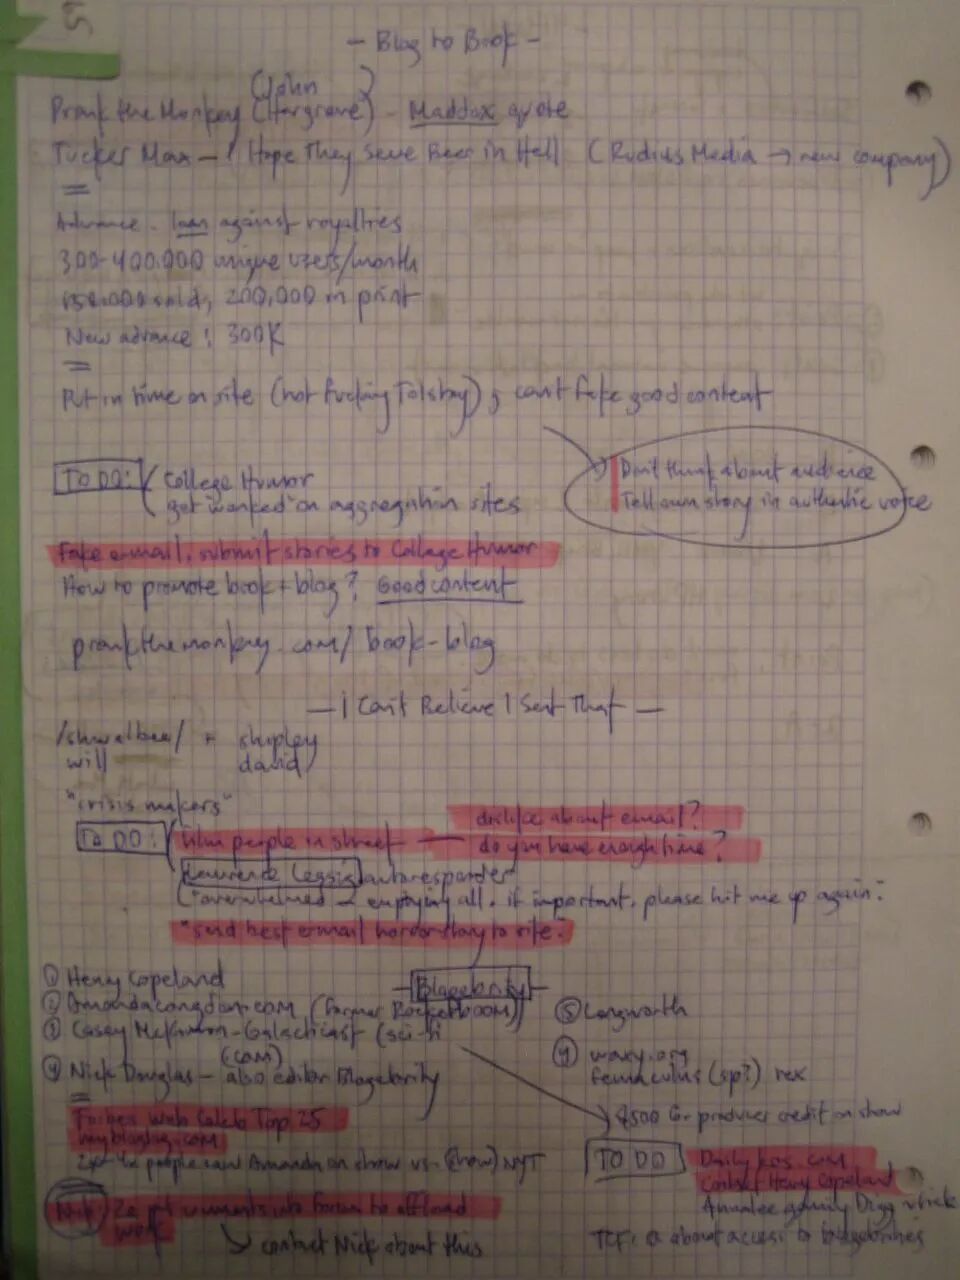 - Blog to Book -
(John
Prank the Monkey (Hargrove) - Maddox quote
Tucker Max - I Hope They Serve Beer in Hell (Rudius Media → new company)
Advance - loan against royalties
300-400,000 unique users/month
150,000 sold, 200,000 in print
New advance: 300K
Put in time on site (not fucking Tolstoy), can't fake good content
Don't think about audience
Tell own story in authentic voice
TO DO: College Humor
get worked on aggregation sites
Fake e-mail, submit stories to College Humor
How to promote book + blog? Good content
prankthemonkey.com/book-blog
- I Can't Believe I Sent That -
/shwalbee/ + shipley
will david
"crisis makers"
TO DO: film people in street - dislike about email?
do you have enough time?
Lawrence Lessig autoresponder
("overwhelmed → emptying all, if important, please hit me up again."
"send best e-mail horror story to site."
- Blogebrity -
① Henry Copeland
② Amandacongdon.com (former RocketBOOM)
③ Casey McKinnon - Galacticast (sci-fi
(com)
④ Nick Douglas - also editor Blogebrity
⑤ Longworth
waxy.org
femaculus (sp?) rex
$500 for producer credit on show
Forbes Web Celeb Top 25
mybloglog.com
people saw Amanda on show vs. (show) NYT
TO DO Dailykos.com
Contact Henry Copeland
Annalee gaming Digg article
Nick: comments into forum to offload
work
→ contact Nick about this
TCF: Q about access to blogebrities